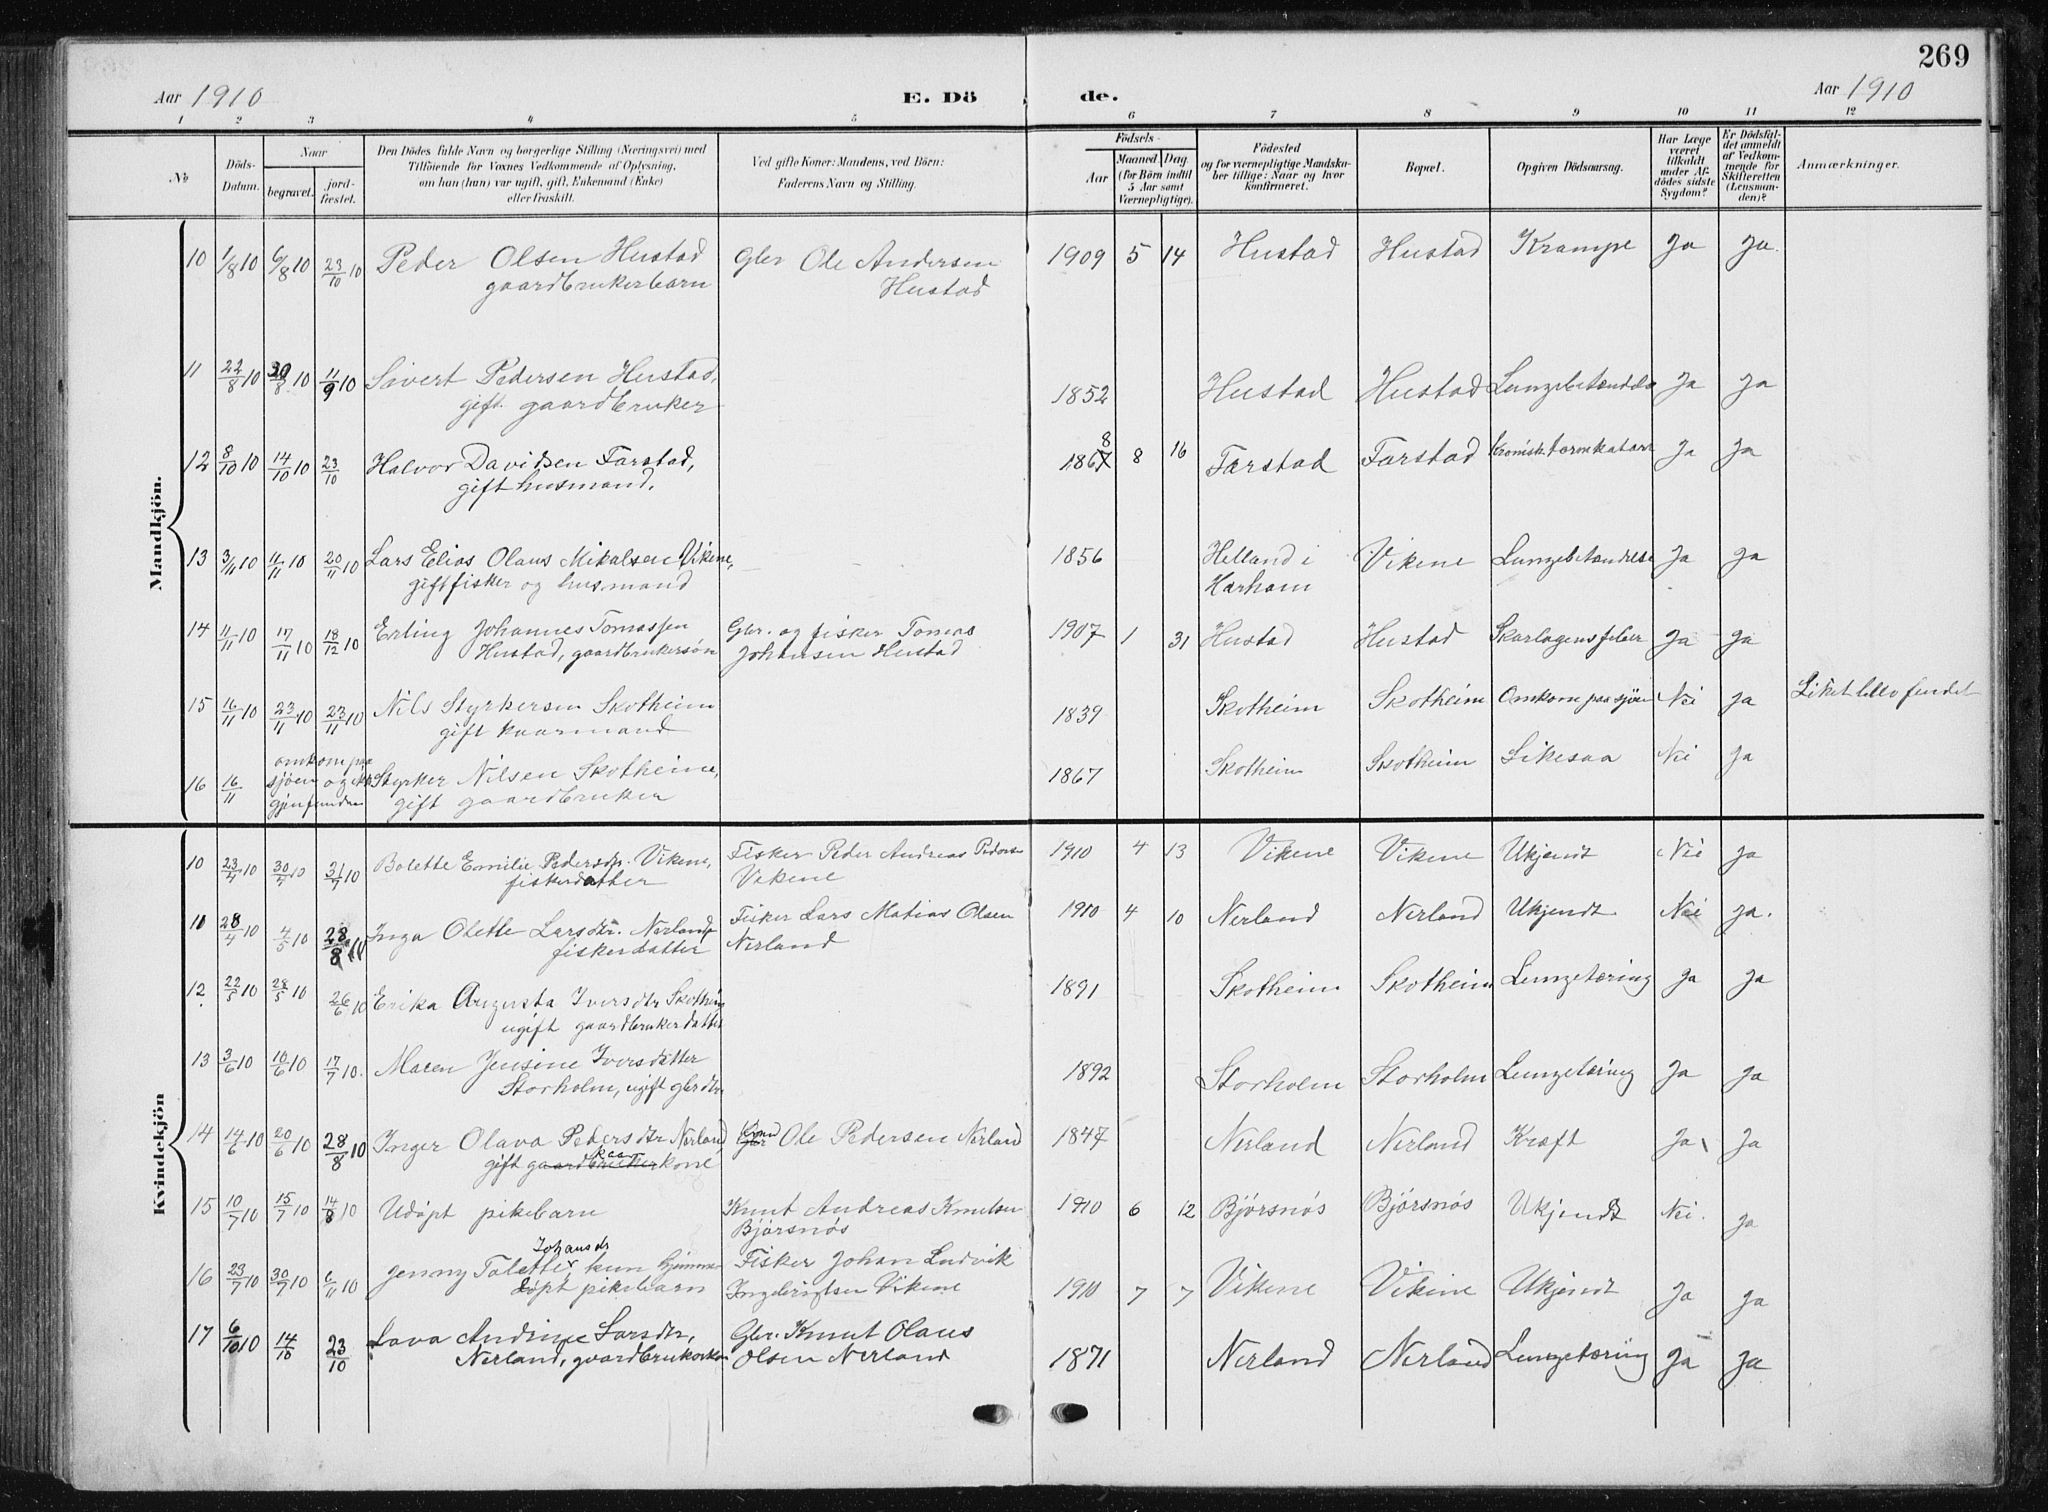 269
Aar 1910 E. Dö de. Aar 1910
1 2 3 4 5 6 7 8 9 10 11 12
№ Döds-Datum. Naar begravet. jord-fæstet. Den Dödes fulde Navn og borgerlige Stilling (Næringsvei) med Tilföiende for Voxnes Vedkommende af Oplysning, om han (hun) var ugift, gift, Enkemand (Enke) eller fraskilt. Ved gifte Koner: Mandens, ved Börn: Faderens Navn og Stilling. Födsels- Aar Maaned. Dag. (for Börn indtil 5 Aar samt Værnepligtige). Födested og for værnepligtige Mandskaber tillige: Naar og hvor Konfirmeret. Bopæl. Opgiven Dödsaarsag. Har Læge været tilkaldt under Afdödes sidste Sygdom? Er Dödsfaldet anmeldt af Vedkommende for Skifteretten (Lensmanden)? Anmærkninger.
Mandkjön.
10 1/8 10 6/8 10 23/10 10 Peder Olsen Hustad Gbr Ole Andersen 1909 5 14 Hustad Hustad Krampe Ja Ja.
gaardbrukerbarn Hustad
11 22/8 10 30/8 10 11/9 10 Sivert Pedersen Hustad, 1852 Hustad Hustad Lungebetændelse Ja Ja
gift gaardbruker
12 8/10 10 14/10 10 23/10 Halvor Davidsen Farstad, 1867 8 8 16 Farstad Farstad Kronisk tarmkatarr Ja Ja
gift husmand.
13 3/11 10 11/11 10 20/11 10 Lars Elias Olaus Mikalsen Vikene, 1856 Helland i Vikene Lungebetændelse Ja Ja
gift fisker og husmand Harham
14 11/11 10 17/11 10 18/12 10 Erling Johannes Tomassen Gbr. og fisker Tomas 1907 1 31 Hustad Hustad Skarlagensfeber Ja Ja
Hustad, gaardbrukersøn Johansen Hustad
15 16/11 10 23/11 10 23/11 10 Nils Styrkersen Skotheim 1839 Skotheim Skotheim Omkom paa sjøen Nei Ja Liket blev fundet
gift kaarmand
16 16/11 omkom paa sjøen og ikke gjenfunden Styrker Nilsen Skotheim, 1867 Skotheim Skotheim Likesaa Nei Ja
gift gaardbruker
Kvindekjön
10 23/4 10 30/4 10 31/7 10 Bolette Emilie Pedersdtr. Vikene, Fisker Peder Andreas Pedersen 1910 4 13 Vikene Vikene Ukjendt Nei Ja
fiskerdatter Vikene
10 28/4 10 4/5 10 28/8 10 Inga Olette Larsdtr. Nerland Fisker Lars Matias Olsen 1910 4 10 Nerland Nerland Ukjendt Nei Ja.
fiskerdatter Nerland
12 22/5 10 28/5 10 26/6 10 Erika Augusta Iversdtr Skotheim 1891 Skotheim Skotheim Lungetæring Ja Ja
ugift gaardbrukerdatter
13 3/6 10 10/6 10 17/7 10. Maren Jensine Iversdatter 1892 Storholm Storholm Lungetæring Ja Ja
Storholm, ugift gbrdtr
14 14/6 10 20/6 10 28/8 10 Inger Olava Pedersdtr Nerland Ole Pedersen Nerland 1847 Nerland Nerland Kræft Ja Ja
gift gaardbruker kaar kone
15 10/7 10 15/7 10 14/8 10 Udøpt pikebarn Knut Andreas Knutsen 1910 6 12 Bjørsnøs Bjørsnøs Ukjendt Nei. Ja
Bjørsnøs
16 23/7 10 30/7 10 6/11 10 Jenny Talette Johansdr, kun hjemme- Fisker Johan Ludvik 1910 7 7 Vikene Vikene Ukjendt Ja Ja
døpt pikebarn Ingebrigtsen Vikene
17 6/10 10 14/10 23/10 Lava Andrine Larsdtr, Gbr. Knut Olaus 1871 Nerland Nerland Lungetæring Ja Ja
Nerland, gaardbrukerkone Olsen Nerland